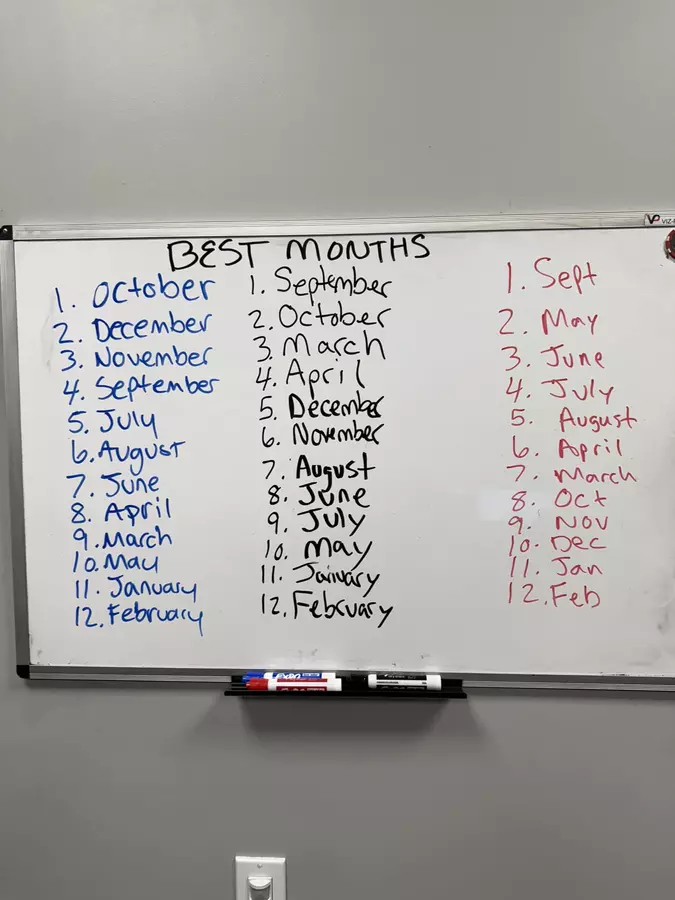 BEST MONTHS
1. October
2. December
3. November
4. September
5. July
6. August
7. June
8. April
9. March
10. May
11. January
12. February
1. September
2. October
3. March
4. April
5. December
6. November
7. August
8. June
9. July
10. May
11. January
12. February
1. Sept
2. May
3. June
4. July
5. August
6. April
7. March
8. Oct
9. Nov
10. Dec
11. Jan
12. Feb
EXPO